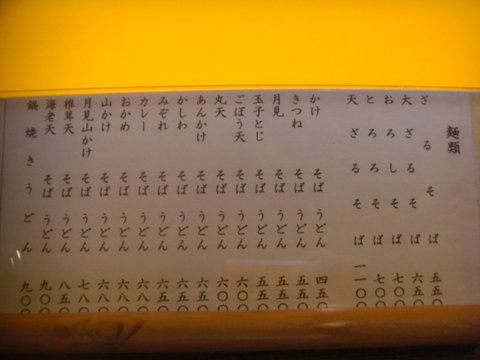 麺類
ざるそば 五五〇
大ざるそば 六五〇
おろしそば 七〇〇
とろろそば 七〇〇
天ざるそば 一一〇〇
かけ そば うどん 四五〇
きつね そば うどん 五五〇
月見 そば うどん 五五〇
玉子とじ そば うどん 五五〇
ごぼう天 そば うどん 六〇〇
丸天 そば うどん 六〇〇
あんかけ そば うどん 六五〇
かしわ そば うどん 六五〇
みぞれ そば うどん 六五〇
カレー そば うどん 六八〇
おかめ そば うどん 六八〇
山かけ そば うどん 六八〇
月見山かけ そば うどん 七八〇
椎茸天 そば うどん 八五〇
海老天 そば うどん 九〇〇
鍋焼きうどん 九〇〇